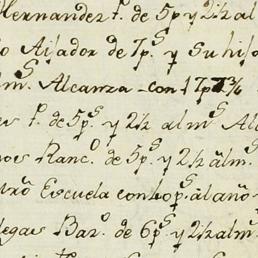 Hernandez f. de 5p y 2½ al
o Aijador de 7p.s y Su hijo
m.s Alcanza con 17p 3/8
f. de 5p.s y 2½ al m.s Al
nos Ranc.o de 5p.s y 2½ alm.s
uro Escuela con 60p.s al año
legas Baz.o de 6p.s y 2½ alm.s